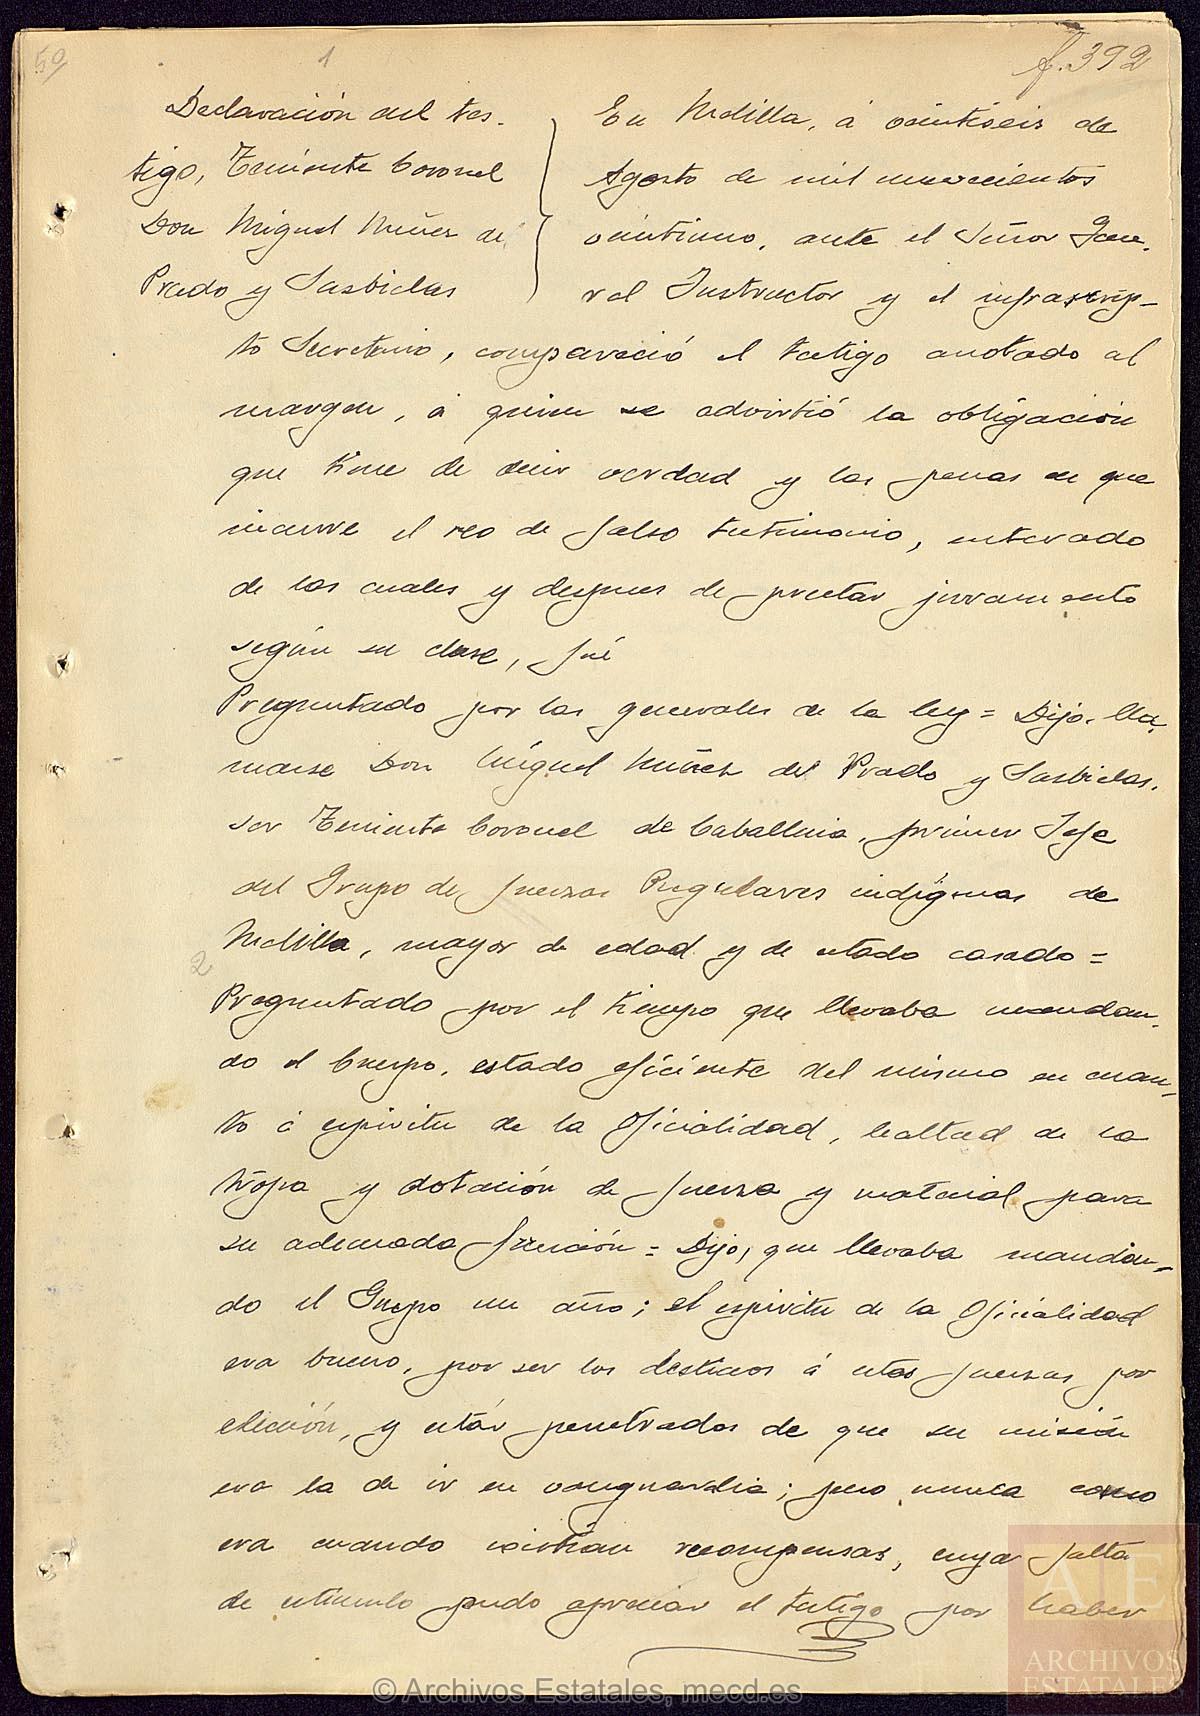 50
1
f. 392
Declaración del tes-
tigo, Teniente Coronel
Don Miguel Núñez de
Prado y Susbielas
En Melilla, á veintiseis de
Agosto de mil novecientos
veintiuno, ante el Señor Gene-
ral Instructor y el infrascrip-
to Secretario, compareció el testigo anotado al
margen, á quien se advirtió la obligación
que tiene de decir verdad y las penas en que
incurre el reo de falso testimonio, enterado
de las cuales y despues de prestar juramento
según su clase, fué
Preguntado por las generales de la ley = Dijo. lla-
marse Don Miguel Núñez del Prado y Susbielas.
ser Teniente Coronel de Caballeria, primer Jefe
del Grupo de fuerzas Regulares indígenas de
Melilla, mayor de edad y de estado casado =
2
Preguntado por el tiempo que llevaba mandan-
do el Cuerpo, estado eficiente del mismo en cuan-
to á espiritu de la Oficialidad, lealtad de la
tropa y dotación de fuerza y material para
su adecuada función = Dijo, que llevaba mandan-
do el Grupo un año; el espiritu de la Oficialidad
era bueno, por ser los destinos á estas fuerzas por
elección, y estár penetrados de que su misión
era la de ir en vanguardia; pero nunca como
era cuando existian recompensas, cuya falta
de estimulo pudo apreciar el testigo por haber
AE
ARCHIVOS
ESTATALES
© Archivos Estatales, mecd.es